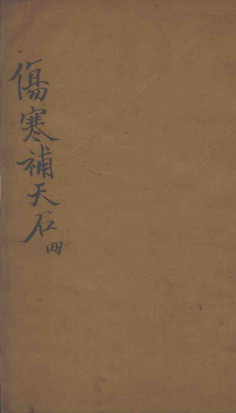 傷寒補天石四